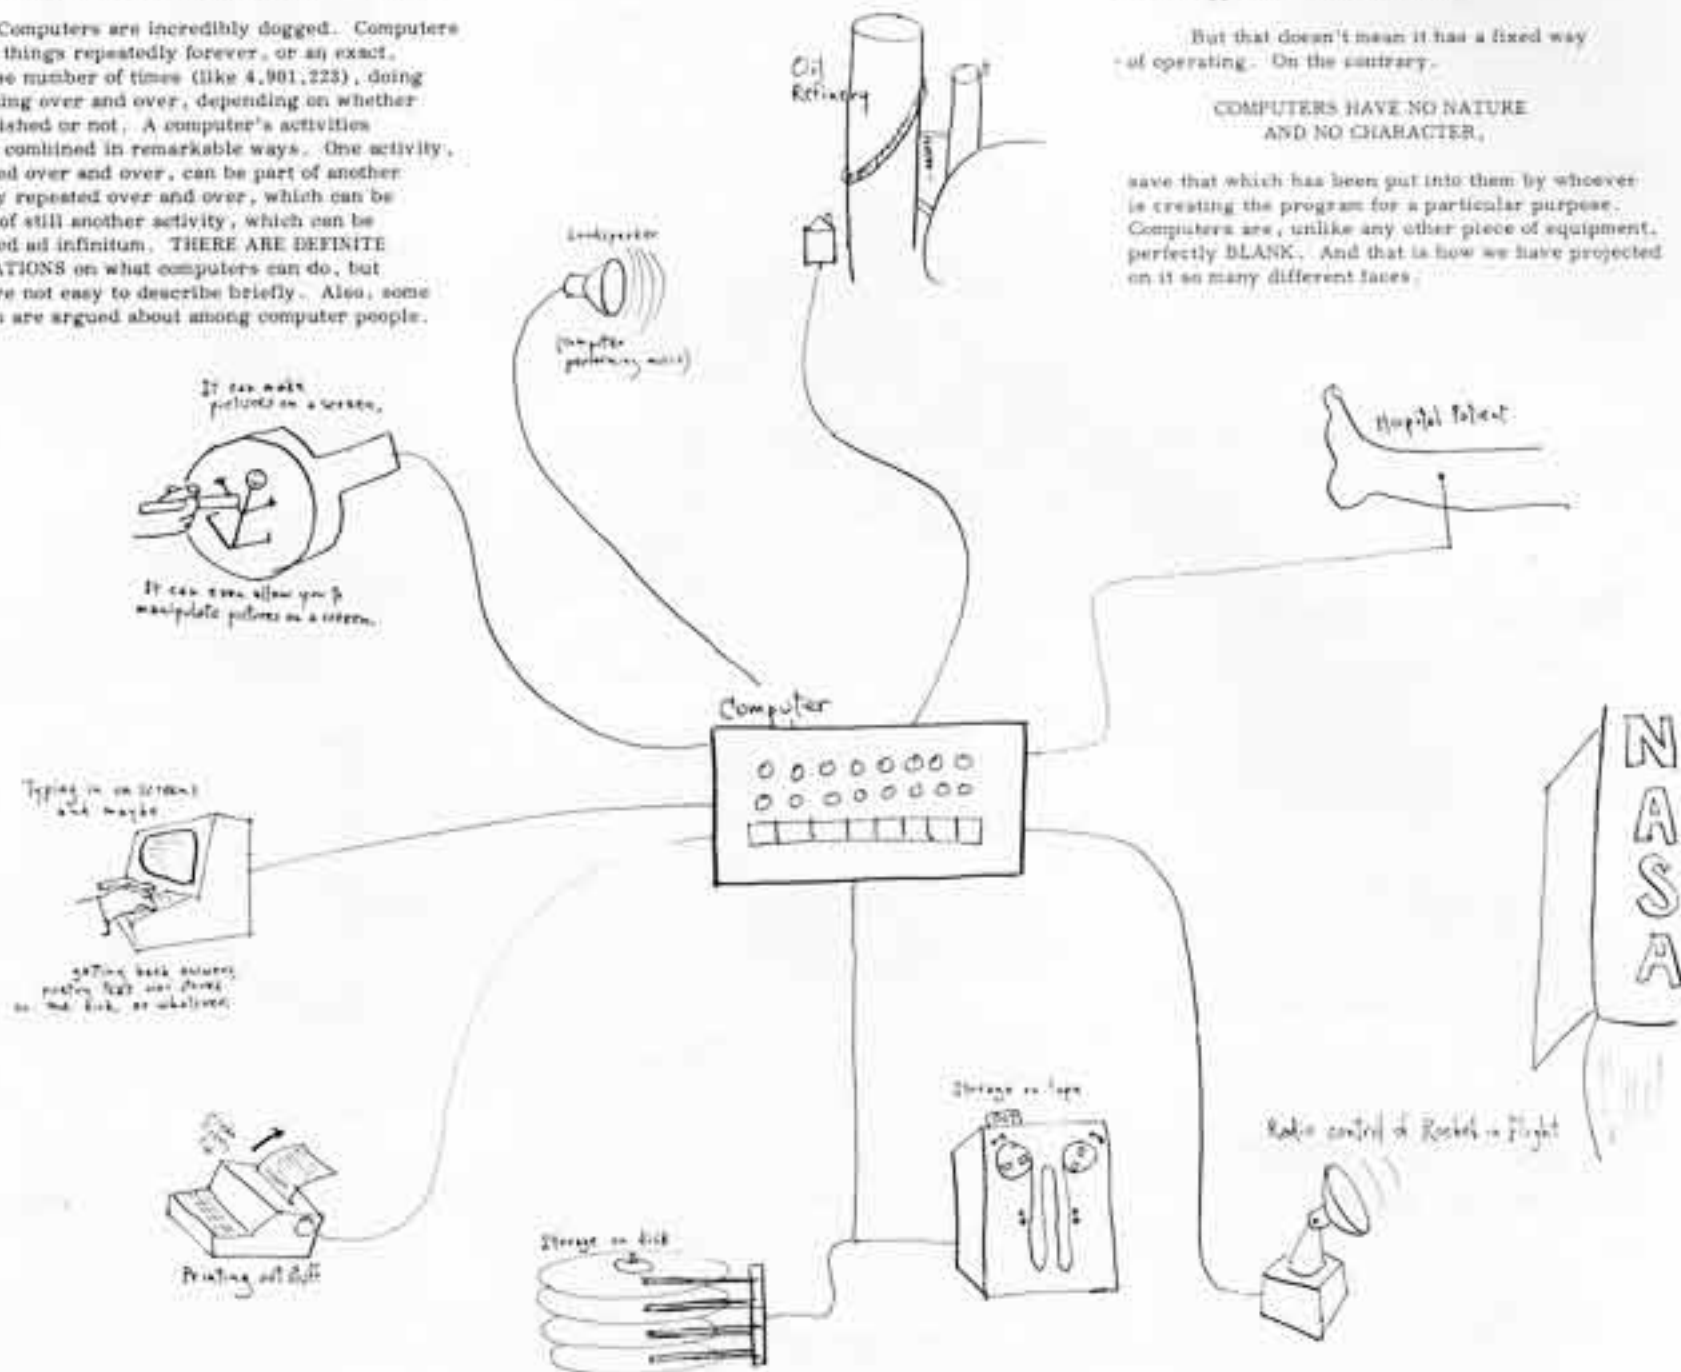 Computers are incredibly dogged. Computers
things repeatedly forever, or an exact,
number of times (like 4,901,223), doing
ing over and over, depending on whether
ished or not. A computer's activities
combined in remarkable ways. One activity,
ed over and over, can be part of another
y repeated over and over, which can be
of still another activity, which can be
ed ad infinitum. THERE ARE DEFINITE
ATIONS on what computers can do, but
re not easy to describe briefly. Also, some
are argued about among computer people.
But that doesn't mean it has a fixed way
of operating. On the contrary.
COMPUTERS HAVE NO NATURE
AND NO CHARACTER,
save that which has been put into them by whoever
is creating the program for a particular purpose.
Computers are, unlike any other piece of equipment,
perfectly BLANK. And that is how we have projected
on it so many different faces.
Oil
Refinery
Loudspeaker
(computer
performing music)
It can make
pictures on a screen.
It can even allow you to
manipulate pictures on a screen.
Hospital Patient
Computer
Typing in on screens
and maybe
getting back answers,
on the disk, or whatever.
NASA
Storage on tape
Radio control of Rocket in Flight
Storage on disk
Printing out stuff